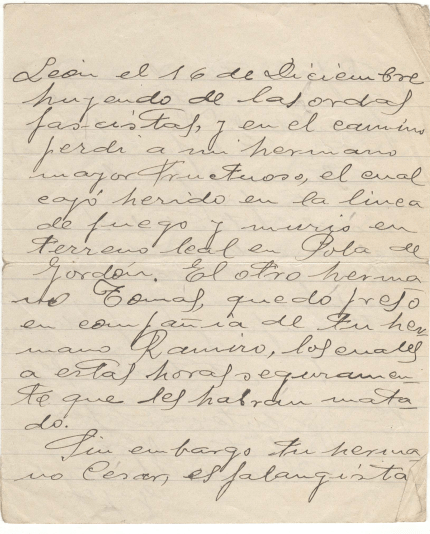 León el 16 de Diciembre
huyendo de las ordas
fascistas, y en el camino
perdi a mi hermano
mayor Fructuoso, el cual
cayó herido en la linea
de fuego y murió en
terreno leal en Pola de
Gordón. El otro herma
no Tomás, quedo preso
en compañia de tu her-
mano Ramiro, los cuales
a estas horas seguramen-
te que les habran mata-
do.
Sin embargo tu herma-
no César, es falangista